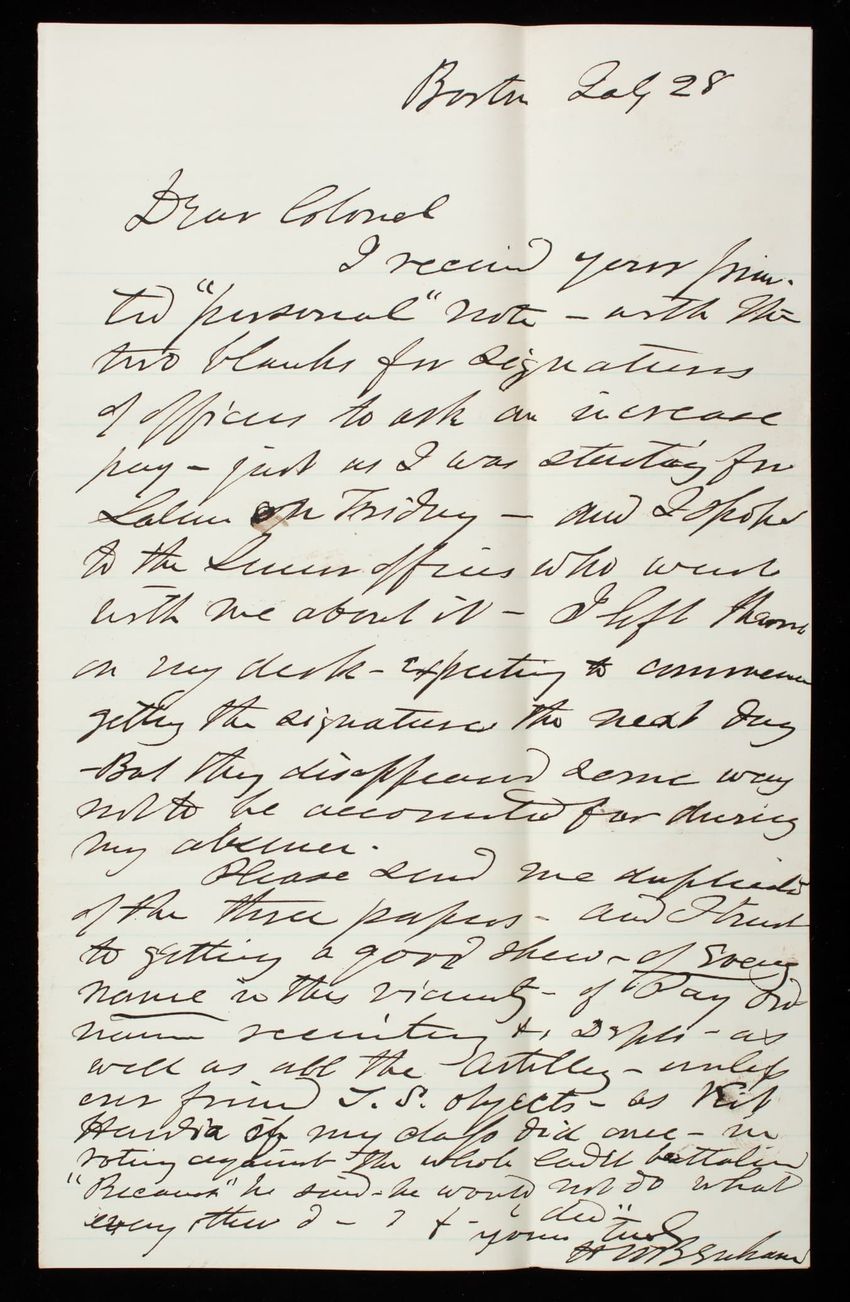 Boston July 28
Dear Colonel
I received your prin-
ted "personal" note - with the
two blanks for signatures
of officers to ask an increase
pay - just as I was starting for
Salem on Friday - and I spoke
to the Senior officers who went
with me about it - I left them
on my desk - expecting to commence
getting the signatures the next day
- But they disappeared some way
not to be accounted for during
my absence.
Please send me duplicates
of the three papers - and I trust
to getting a good show - of Every
name in this vicinity - of Pay
recruiting &c Depts - as
well as all the Artillery - unless
our friend T. S. objects - as
of my class did once - in
voting against the whole Cadet battalion
"Because" he said - he would not do what
every other d - d f - "did"
yours truly
H W Benham